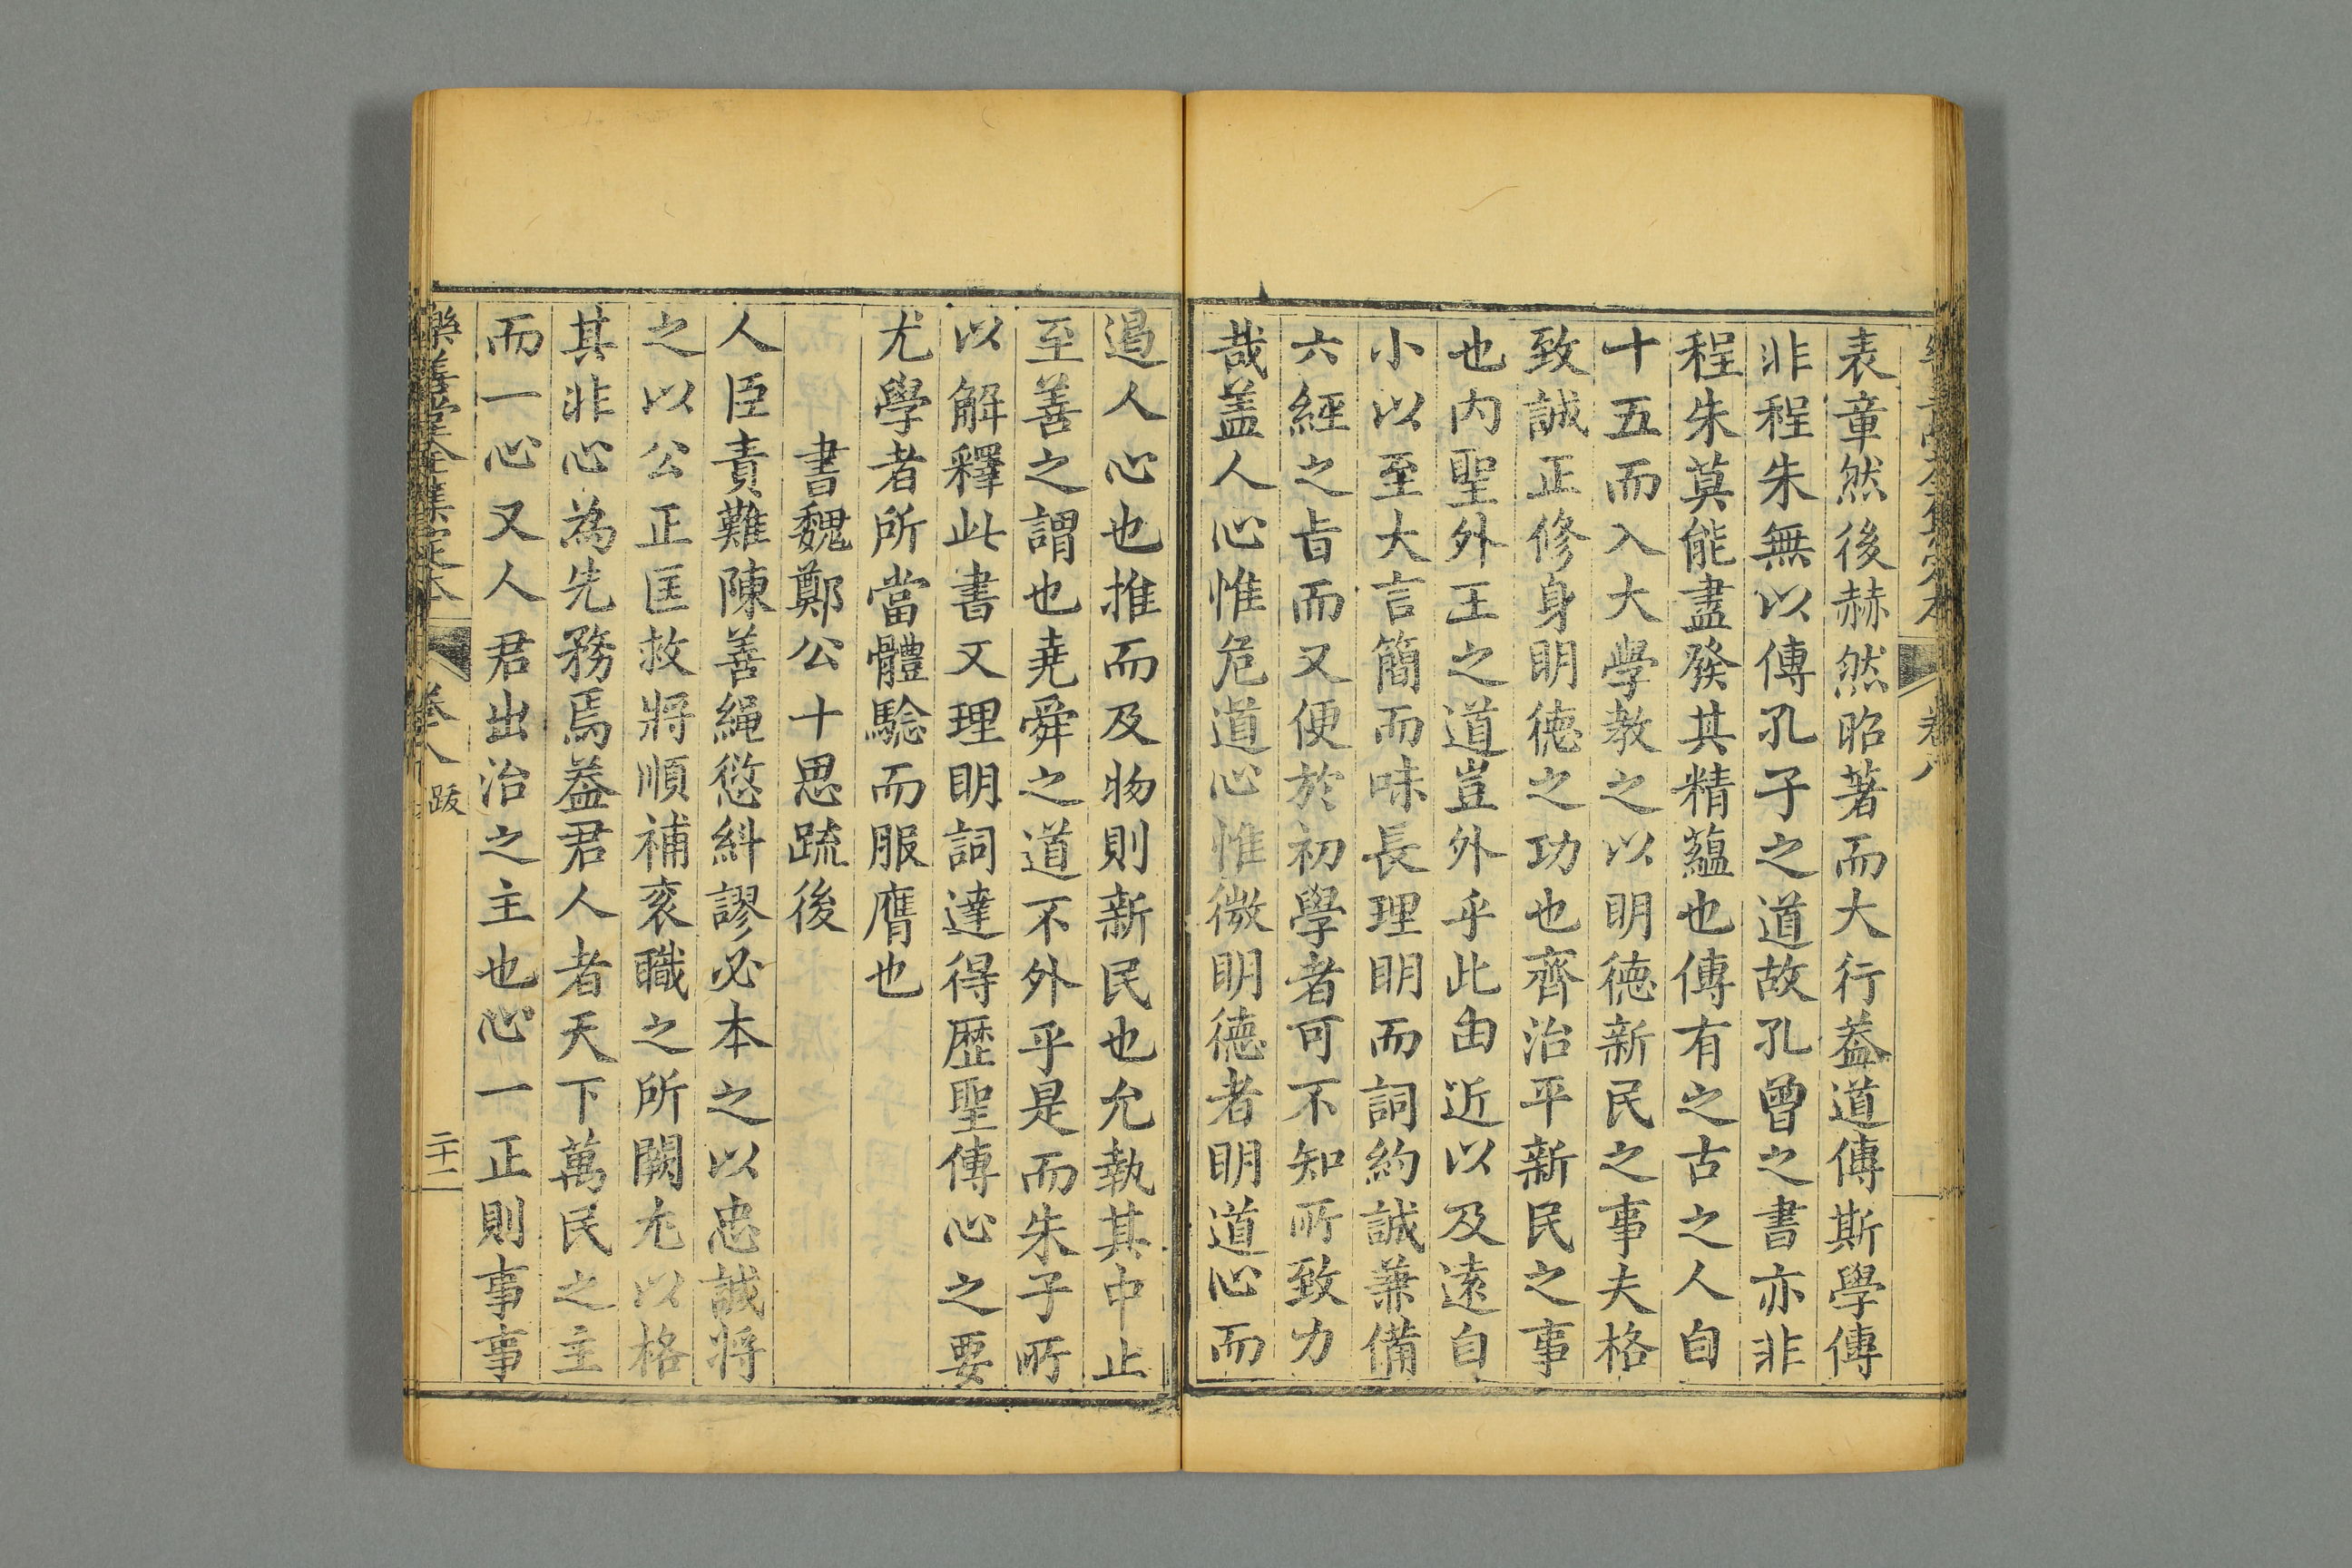 表章然後赫然昭著而大行葢道傳斯學傳
非程朱無以傳孔子之道故孔曾之書亦非
程朱莫能盡發其精蘊也傳有之古之人自
十五而入大學教之以明德新民之事夫格
致誠正修身明德之功也齊治平新民之事
也内聖外王之道豈外乎此由近以及遠自
小以至大言簡而味長理明而詞約誠兼備
六經之旨而又便於初學者可不知所致力
哉盖人心惟危道心惟微明德者明道心而
遏人心也推而及物則新民也允執其中止
至善之謂也堯舜之道不外乎是而朱子所
以解釋此書文理明詞達得歷聖傳心之要
尤學者所當體騐而服膺也
書魏鄭公十思疏後
人臣責難陳善繩愆糾謬必本之以忠誠將
之以公正匡救將順補衮職之所闕尤以格
其非心為先務焉葢君人者天下萬民之主
而一心又人君出治之主也心一正則事事
樂善堂全集定本 卷八 跋 二十二